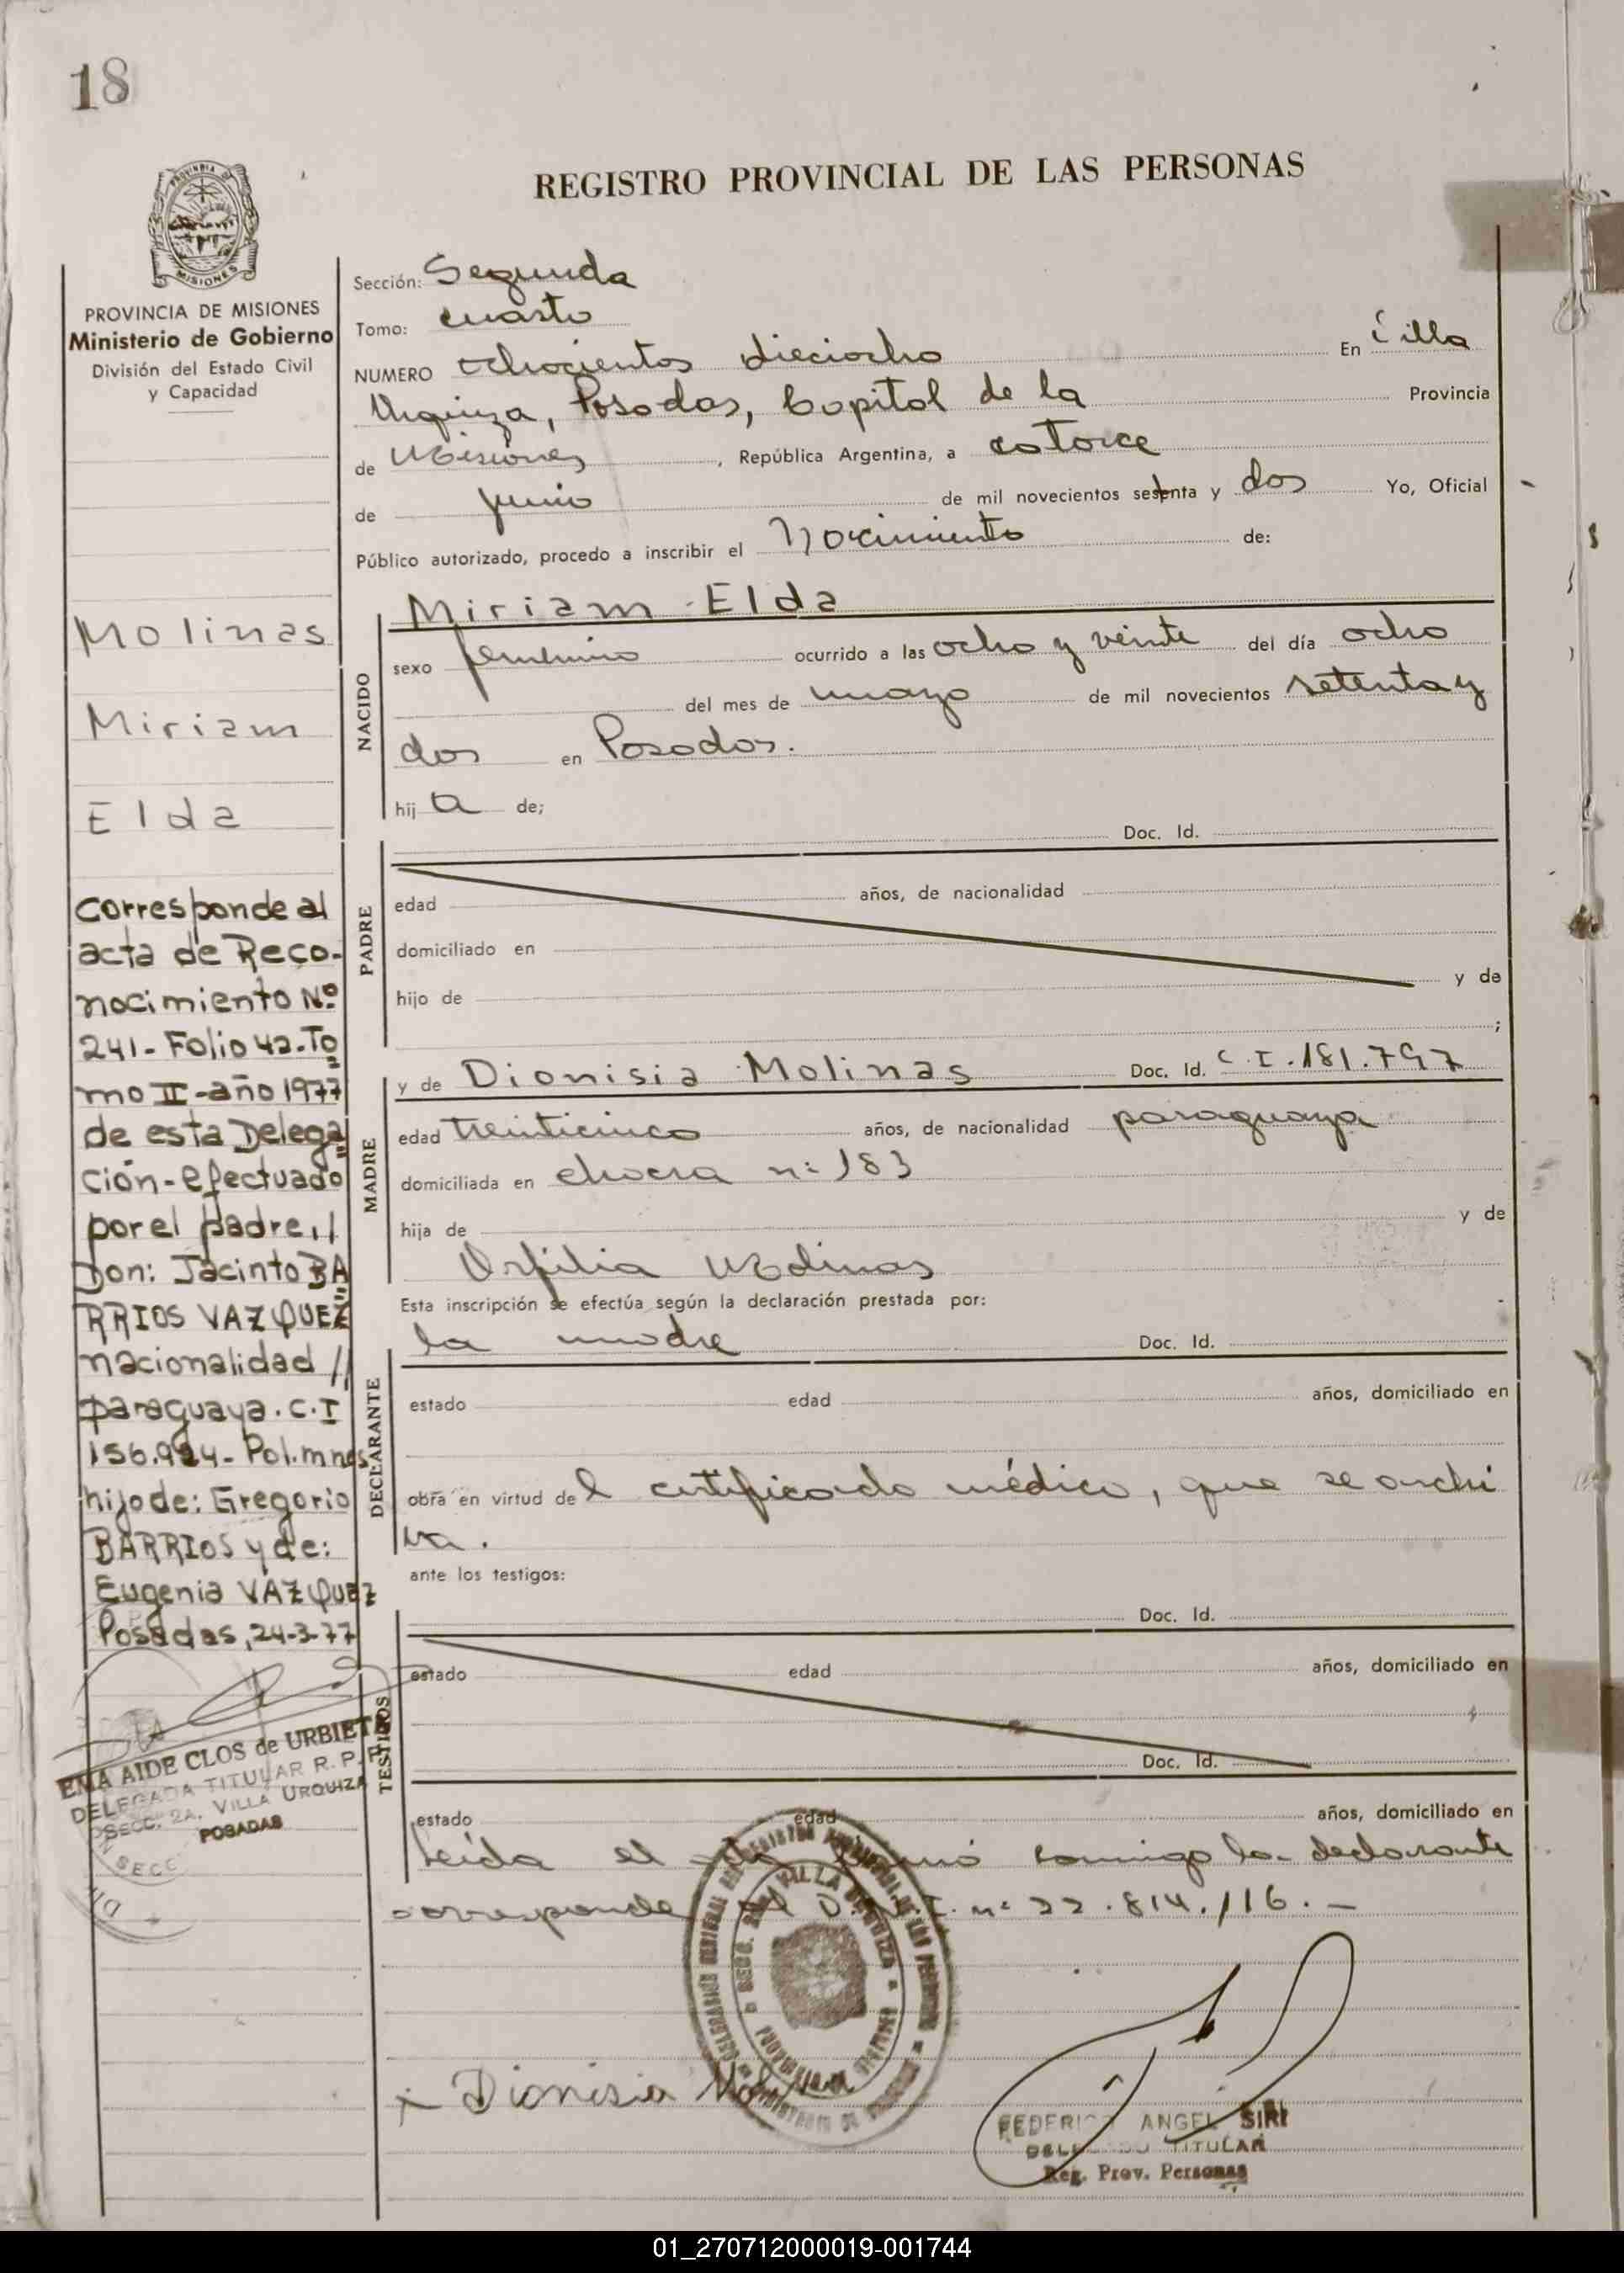 18
PROVINCIA DE MISIONES
Ministerio de Gobierno
División del Estado Civil
y Capacidad
REGISTRO PROVINCIAL DE LAS PERSONAS
Sección: Segunda
Tomo: cuarto
NUMERO ochocientos dieciocho En Villa
Urquiza, Posadas, Capital de la Provincia
de Misiones, República Argentina, a catorce
de junio de mil novecientos setenta y dos Yo, Oficial
Público autorizado, procedo a inscribir el Nacimiento de:
Molinas
Miriam
Elda
NACIDO
Miriam Elda
sexo femenino ocurrido a las ocho y veinte del día ocho
del mes de mayo de mil novecientos setenta y
dos en Posadas.
hija de;
PADRE
Doc. Id.
edad años, de nacionalidad
domiciliado en
hijo de y de
;
MADRE
y de Dionisia Molinas Doc. Id. C.I.181.797
edad treinticinco años, de nacionalidad paraguaya
domiciliada en chacra n: 183
hija de y de
Orfilia Molinas
Esta inscripción se efectúa según la declaración prestada por:
DECLARANTE
la madre Doc. Id.
estado edad años, domiciliado en
obra en virtud del certificado médico, que se archi
va.
ante los testigos:
TESTIGOS
Doc. Id.
estado edad años, domiciliado en
Doc. Id.
estado edad años, domiciliado en
Leída el comigo la declarante
corresponde al D.N.I. n: 22.814.116.-
Dionisia
FEDERICO ANGEL SIRI
DELEGADO TITULAR
Reg. Prov. Personas
Corresponde al
acta de Reco-
nocimiento Nº
241-Folio 42-To
mo II-año 1977
de esta Delega
ción-efectuado
por el padre,//
Don: Jacinto BA
RRIOS VAZQUEZ
nacionalidad //
paraguaya. C.I
156.924- Pol.mnes
hijo de: Gregorio
BARRIOS y de:
Eugenia VAZQUEZ
Posadas, 24-3-77
EMA AIDE CLOS de URBIETA
DELEGADA TITULAR R. P. P.
SECC. 2A. VILLA URQUIZA
POSADAS
01_270712000019-001744